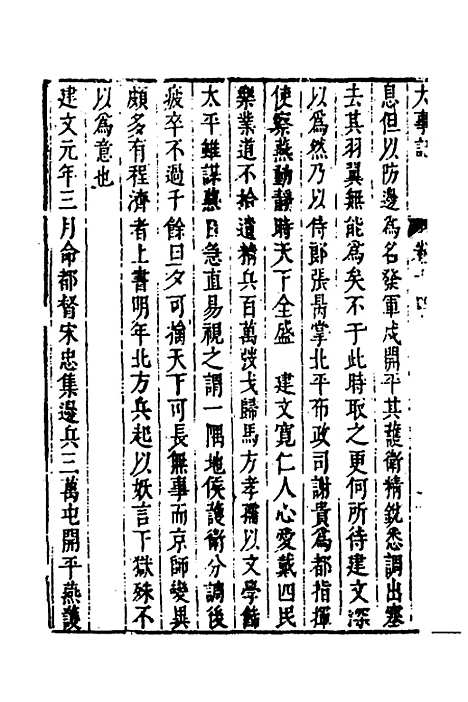 大事記 卷十四
息但以防邊為名發軍戍開平其護衛精銳悉調出塞
去其羽翼無能為矣不于此時取之更何所待建文深
以為然乃以侍郎張昺掌北平布政司謝貴為都指揮
使察燕動靜時天下全盛　建文寬仁人心愛戴四民
樂業道不拾遺精兵百萬弢戈歸馬方孝孺以文學飾
太平雖謀燕日急直易視之謂一隅地侯護衛分調後
疲卒不過千餘旦夕可擒天下可長無事而京師變異
頗多有程濟者上書明年北方兵起以妖言下獄殊不
以為意也
建文元年三月命都督宋忠集邊兵三萬屯開平燕護